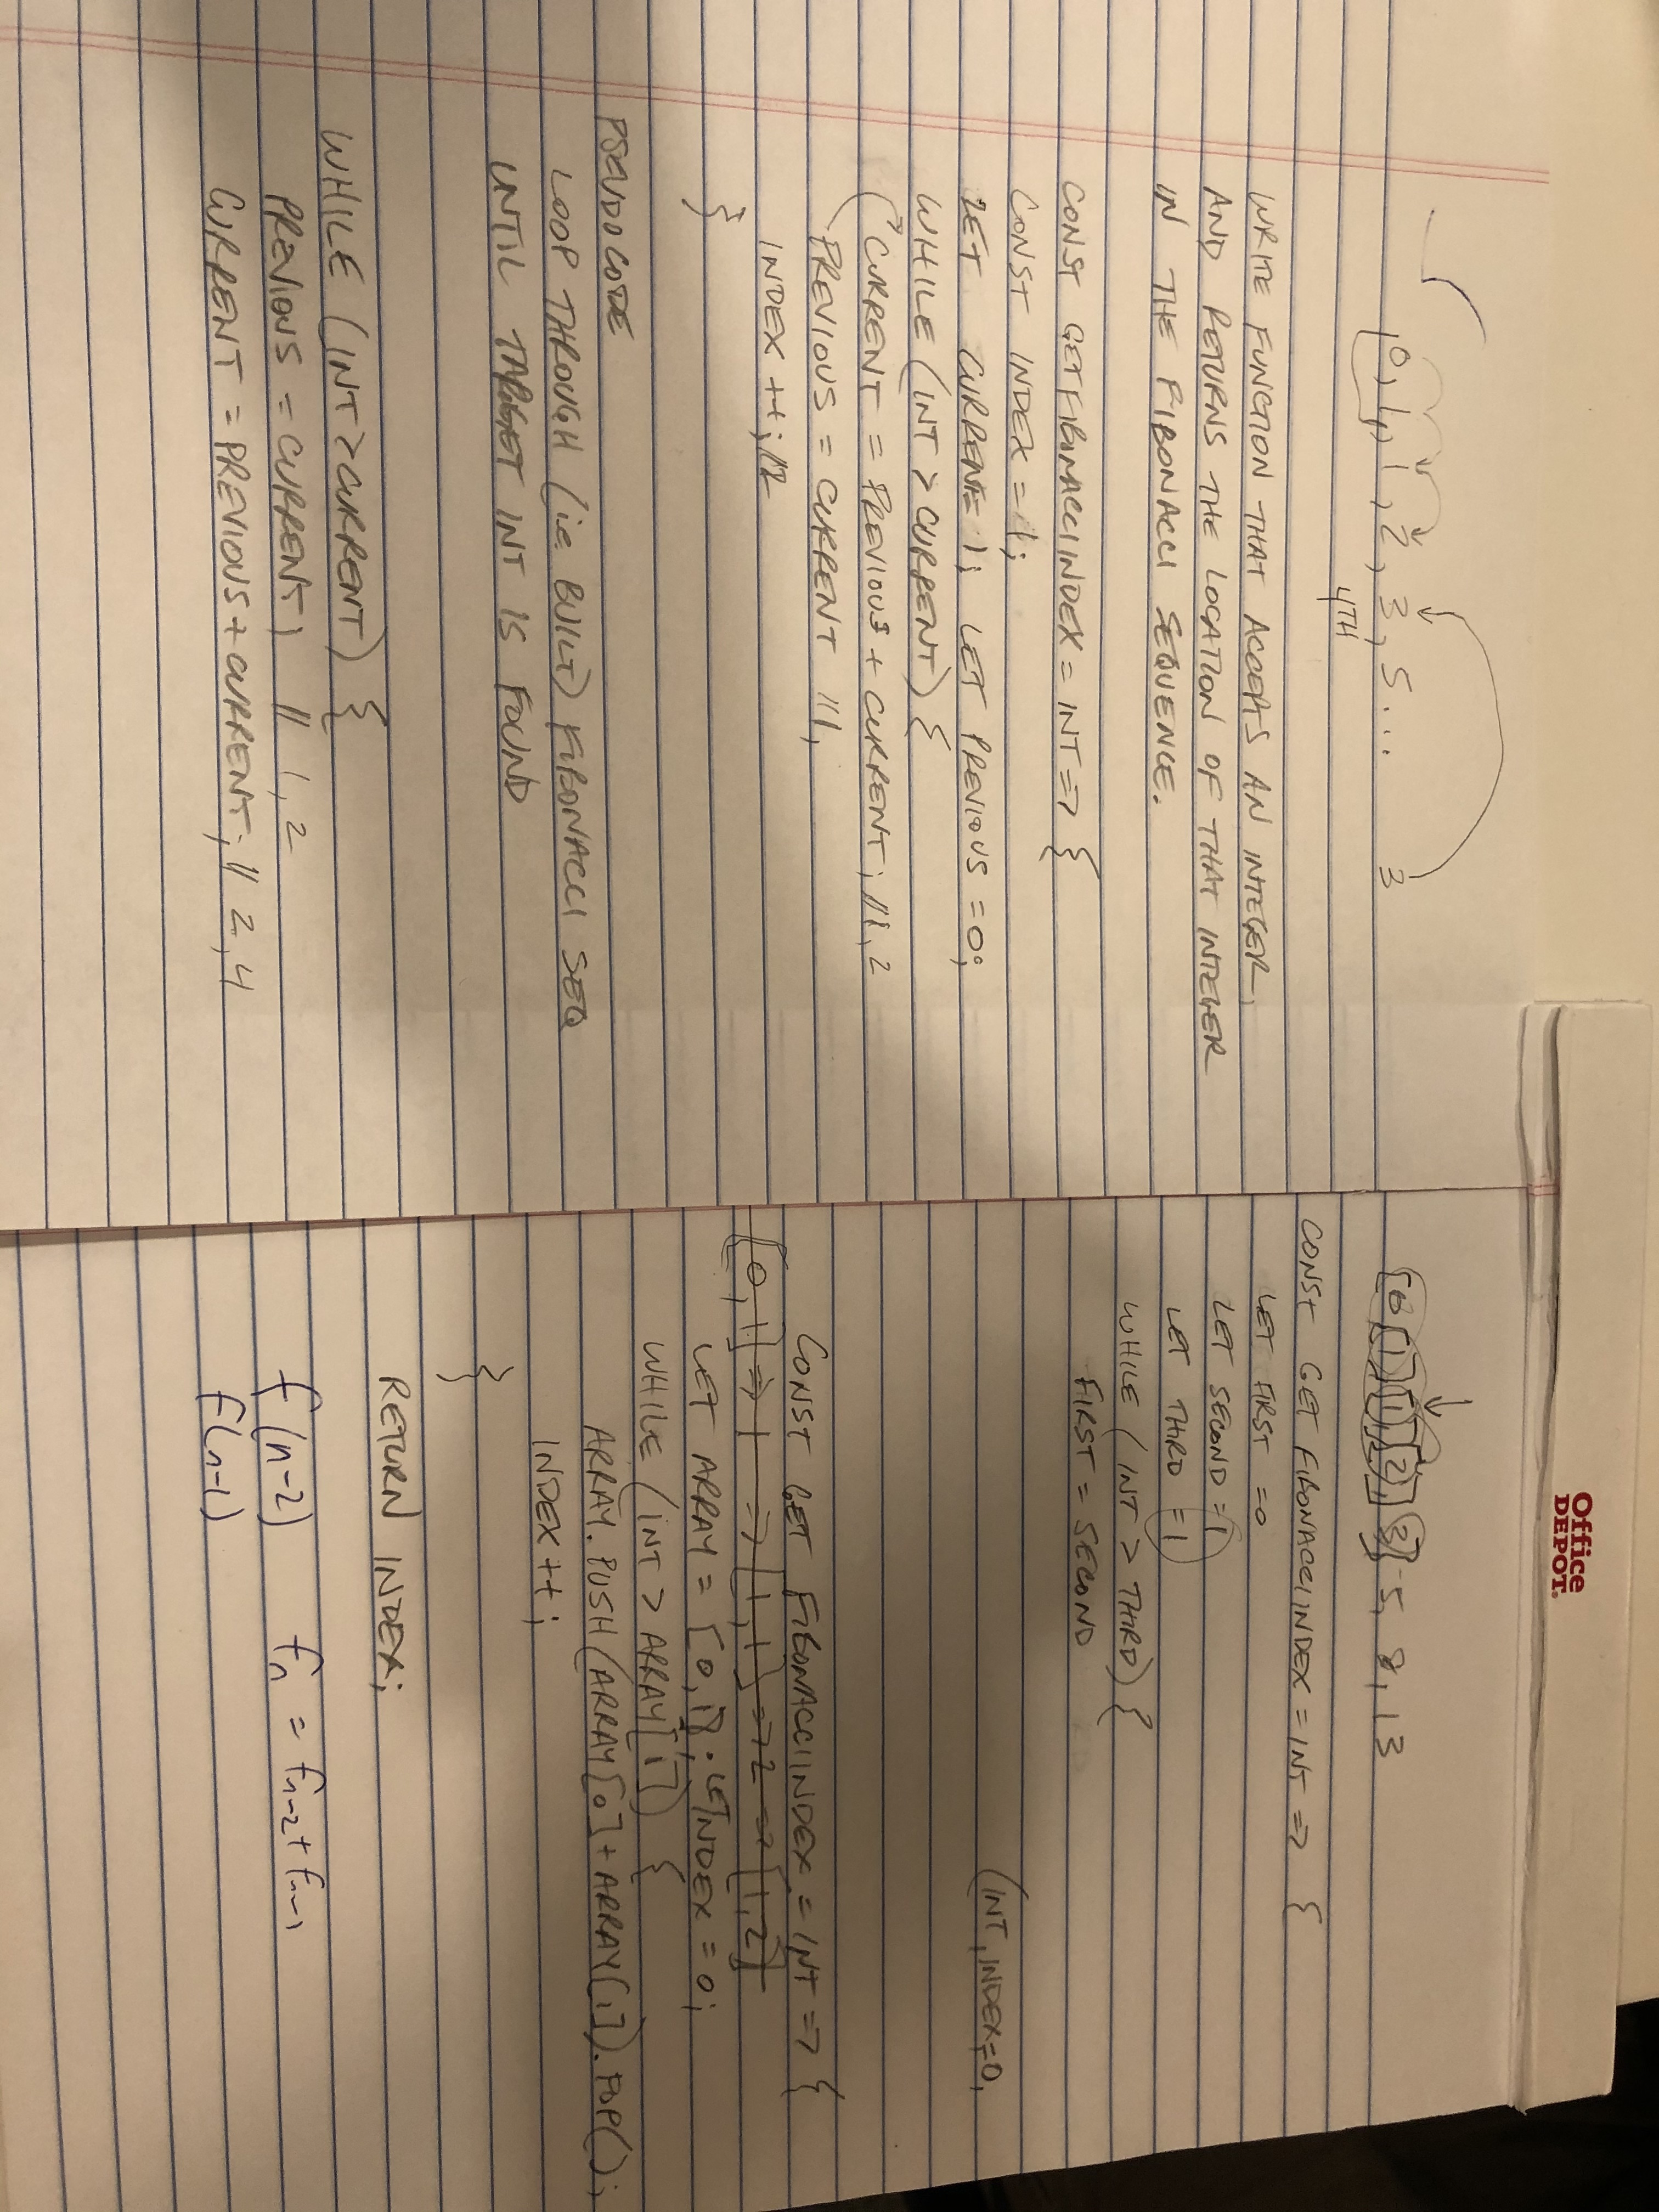 0, 1, 1, 2, 3, 5 ... 3
4TH
WRITE FUNCTION THAT ACCEPTS AN INTEGER,
AND RETURNS THE LOCATION OF THAT INTEGER
IN THE FIBONACCI SEQUENCE.
CONST GETFIBONACCIINDEX = INT => {
CONST INDEX = 1;
LET CURRENT = 1; LET PREVIOUS = 0;
WHILE (INT > CURRENT) {
CURRENT = PREVIOUS + CURRENT; // 1, 2
PREVIOUS = CURRENT // 1,
INDEX ++; // 2
}
PSEUDOCODE
LOOP THROUGH (i.e. BUILT) FIBONACCI SEQ
UNTIL TARGET INT IS FOUND
WHILE (INT > CURRENT) {
PREVIOUS = CURRENT; // 1, 2
CURRENT = PREVIOUS + CURRENT; // 2, 4
Office
DEPOT.
5, 8, 13
CONST GET FIBONACCIINDEX = INT => {
LET FIRST = 0
LET SECOND = 1
LET THIRD = 1
WHILE (INT > THIRD) {
FIRST = SECOND
(INT, INDEX=0,
CONST GET FIBONACCIINDEX = INT => {
[0, 1] => 1 => [1, 1] => 2 => [1, 2]
LET ARRAY = [0, 1]; LET INDEX = 0;
WHILE (INT > ARRAY[1]) {
ARRAY.PUSH(ARRAY[0] + ARRAY[1]).POP();
INDEX ++;
}
RETURN INDEX;
f(n-2) fn = fn-2 + fn-1
f(n-1)